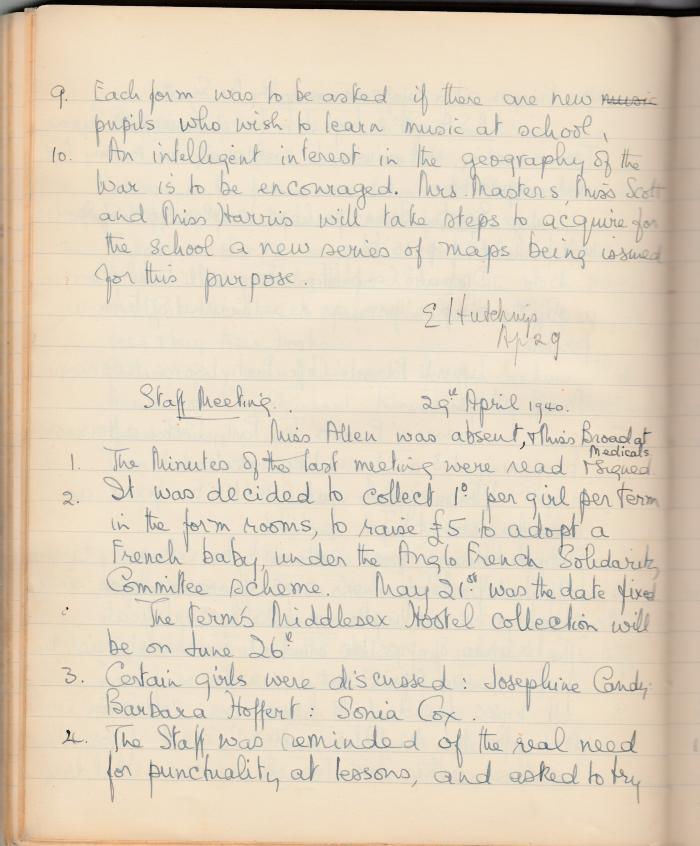 9. Each form was to be asked if there are new music
pupils who wish to learn music at school.
10. An intelligent interest in the geography of the
War is to be encouraged. Mrs. Masters, Miss Scott
and Miss Harris will take steps to acquire for
the school a new series of maps being issued
for this purpose.
E Hutchings
Ap 29
Staff Meeting. 29th April 1940.
Miss Allen was absent, & Miss Broad at
Medicals
1. The Minutes of the last meeting were read & Signed.
2. It was decided to collect 1d per girl per term
in the form rooms, to raise £5 to adopt a
French baby, under the Anglo French Solidarity
Committee scheme. May 21st was the date fixed
The term's Middlesex Hostel collection will
be on June 26th
3. Certain girls were discussed: Josephine Candy:
Barbara Hoffert: Sonia Cox.
4. The Staff was reminded of the real need
for punctuality at lessons, and asked to try